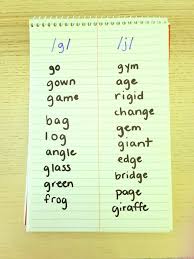 /g/ /j/
go gym
gown age
game rigid
bag change
log gem
angle giant
glass edge
green bridge
frog page
giraffe